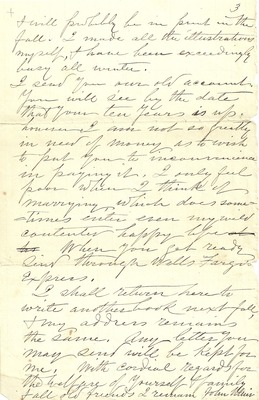 3
I will probably be in print in the
fall. I made all the illustrations
myself, & have been exceedingly
busy all winter.
I send you our old account
You will see by the date
that your ten years is up.
I am not so greatly
in need of money as to wish
to put you to inconvenience
in paying it. I only feel
poor when I think of
marrying, which does some-
times enter even my wild
contented happy life
When you get ready
send through Wells Fargo
Express.
I shall return here to
write another book next fall,
& my address remains
the same. Any letter you
may send will be kept for
me. With cordial regards for
the welfare of yourself family
& all old friends I remain John Muir